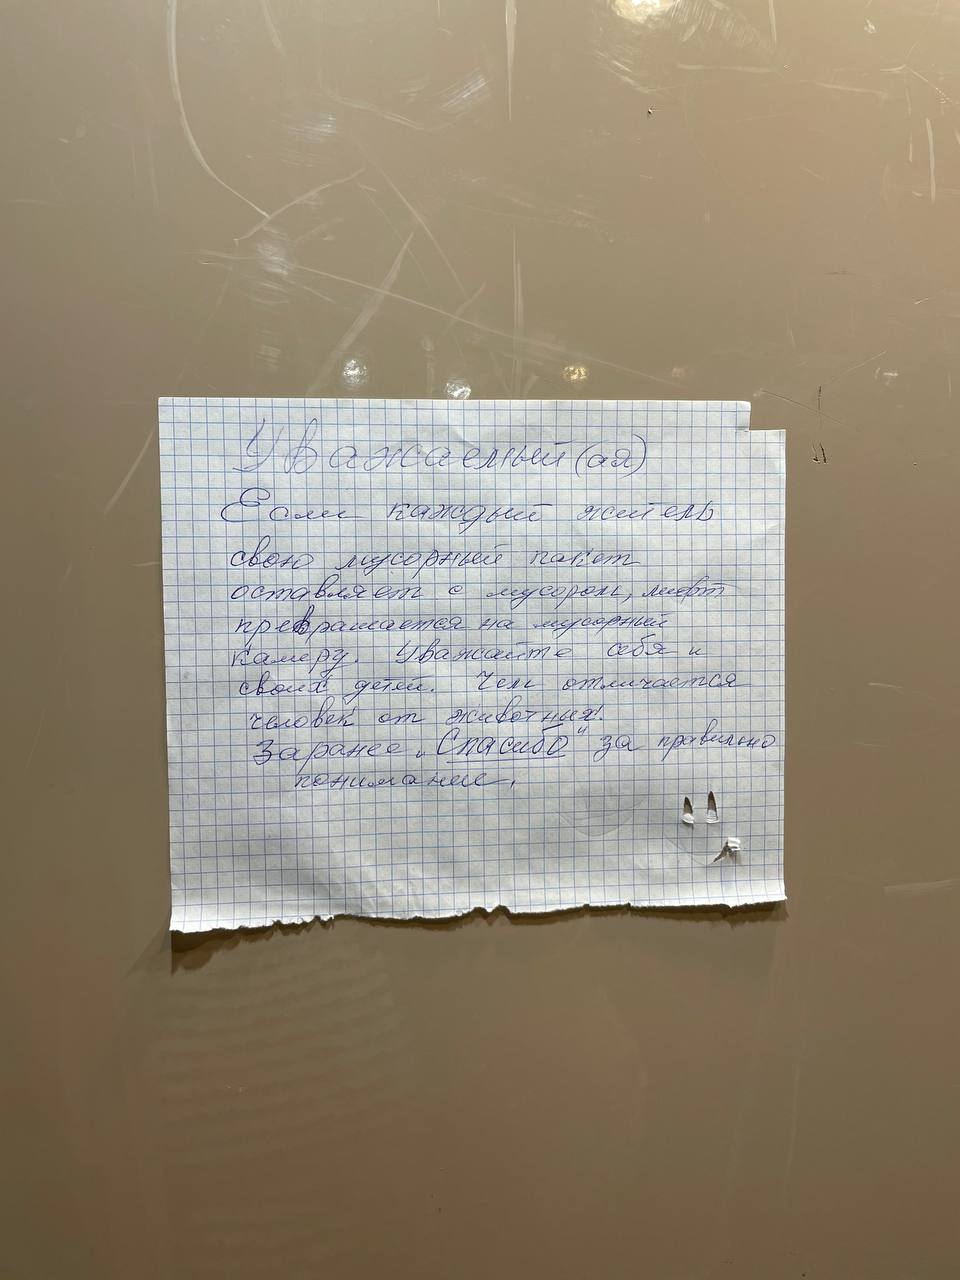 Уважаемый (ая)
Если каждый житель
свою мусорный пакет
оставляет с мусором, лифт
превращается на мусорный
камеру. Уважайте себя и
своих детей. Чем отличается
человек от животных!
Заранее „Спасибо" за правильно
понимание.